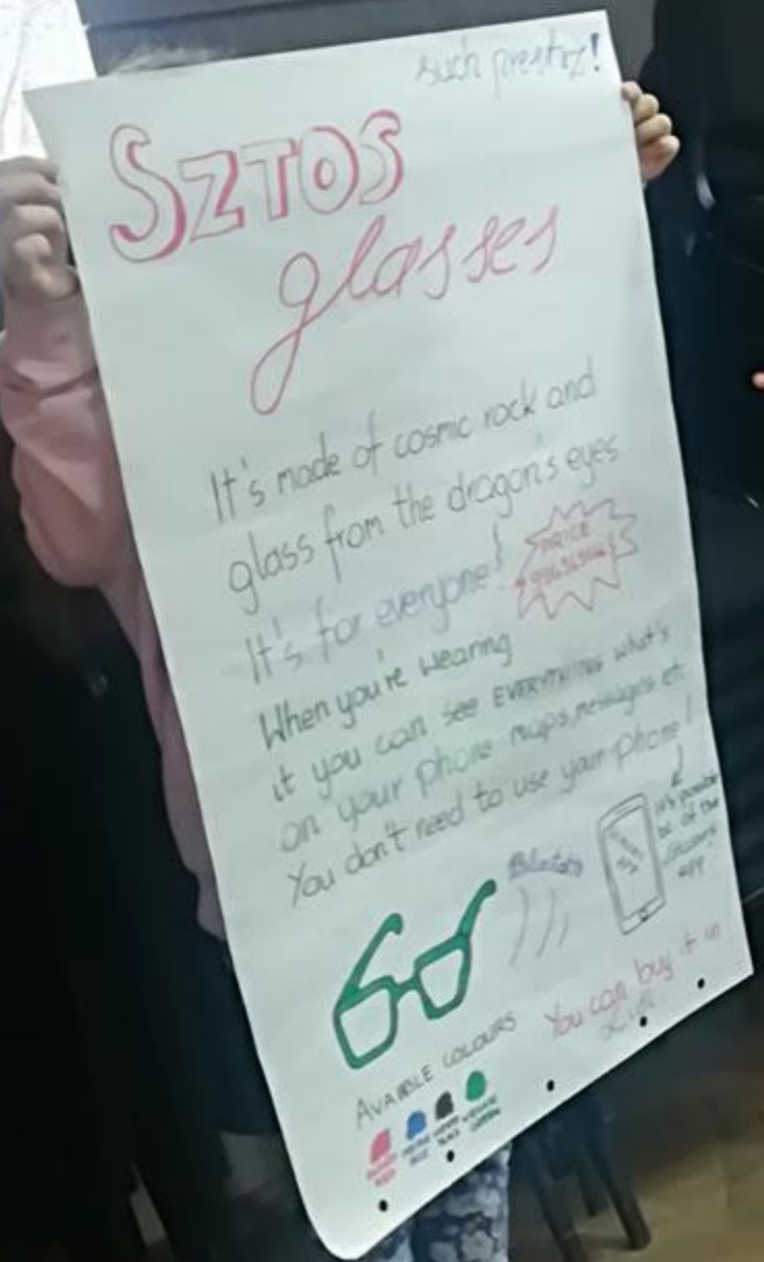 such prestiż!
SZTOS
glasses
It's made of cosmic rock and
glass from the dragon's eyes
It's for everyone!
PRICE
When you're wearing
it you can see EVERYTHING what's
on your phone maps, messages etc
You don't need to use your phone!
it's possible
bc of the
app
You can buy it in
AVAIBLE COLOURS